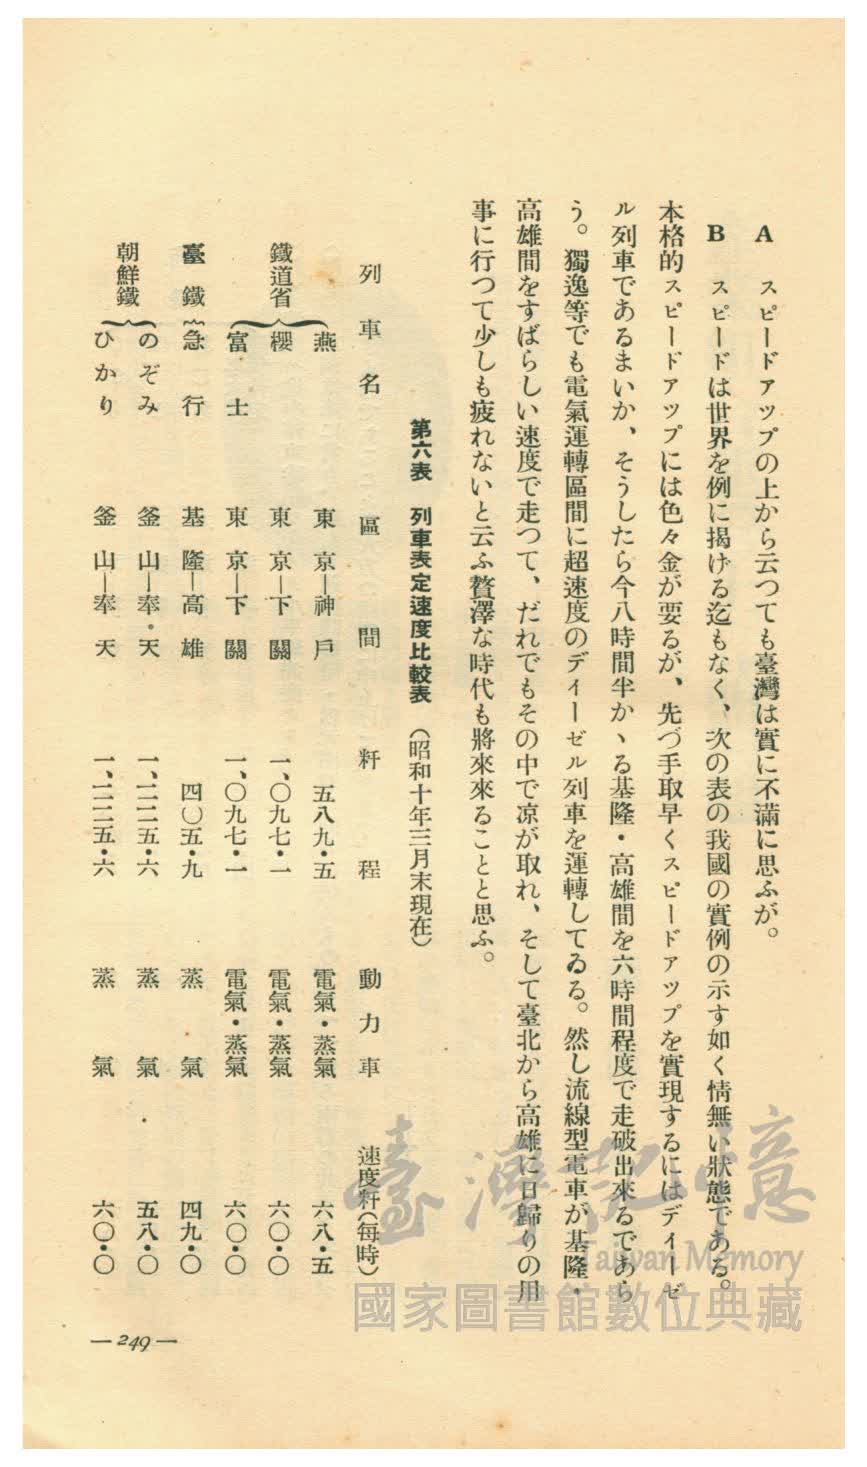 A　スピードアツプの上から云つても臺灣は實に不滿に思ふが。
B　スピードは世界を例に揭げる迄もなく、次の表の我國の實例の示す如く情無い狀態である。
本格的スピードアツプには色々金が要るが、先づ手取早くスピードアツプを實現するにはディーゼ
ル列車であるまいか、そうしたら今八時間半かゝる基隆・高雄間を六時間程度で走破出來るであら
う。獨逸等でも電氣運轉區間に超速度のディーゼル列車を運轉してゐる。然し流線型電車が基隆・
高雄間をすばらしい速度で走つて、だれでもその中で凉が取れ、そして臺北から高雄に日歸りの用
事に行つて少しも疲れないと云ふ贅澤な時代も將來來ることと思ふ。
第六表　列車表定速度比較表　（昭和十年三月末現在）
列車名　區間　粁程　動力車　速度粁（每時）
鐵道省
燕　東京—神戶　五八九・五　電氣・蒸氣　六八・五
櫻　東京—下關　一、〇九七・一　電氣・蒸氣　六〇・〇
富士　東京—下關　一、〇九七・一　電氣・蒸氣　六〇・〇
臺鐵　急行　基隆—高雄　四〇五・九　蒸氣　四九・〇
朝鮮鐵
のぞみ　釜山—奉天　一、二二五・六　蒸氣　五八・〇
ひかり　釜山—奉天　一、二二五・六　蒸氣　六〇・〇
—249—
臺灣記憶
Taiwan Memory
國家圖書館數位典藏